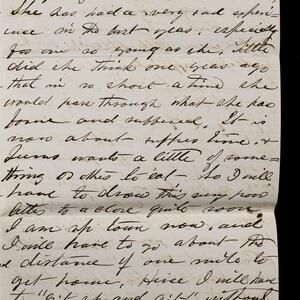 She has had a very sad experi-
ence in the last year, especially
for one so young as she. Little
did she think one year ago
that in so short a time she
would pass through what she has
done and suffered. It is
now about supper time, &
wants a little of some-
thing or other to eat. So I will
have to draw this very poor
letter to a close quite soon.
I am up town now, and
I will have to go about the
distance of one mile to
get home, Hence I will have
to "Git up and git"